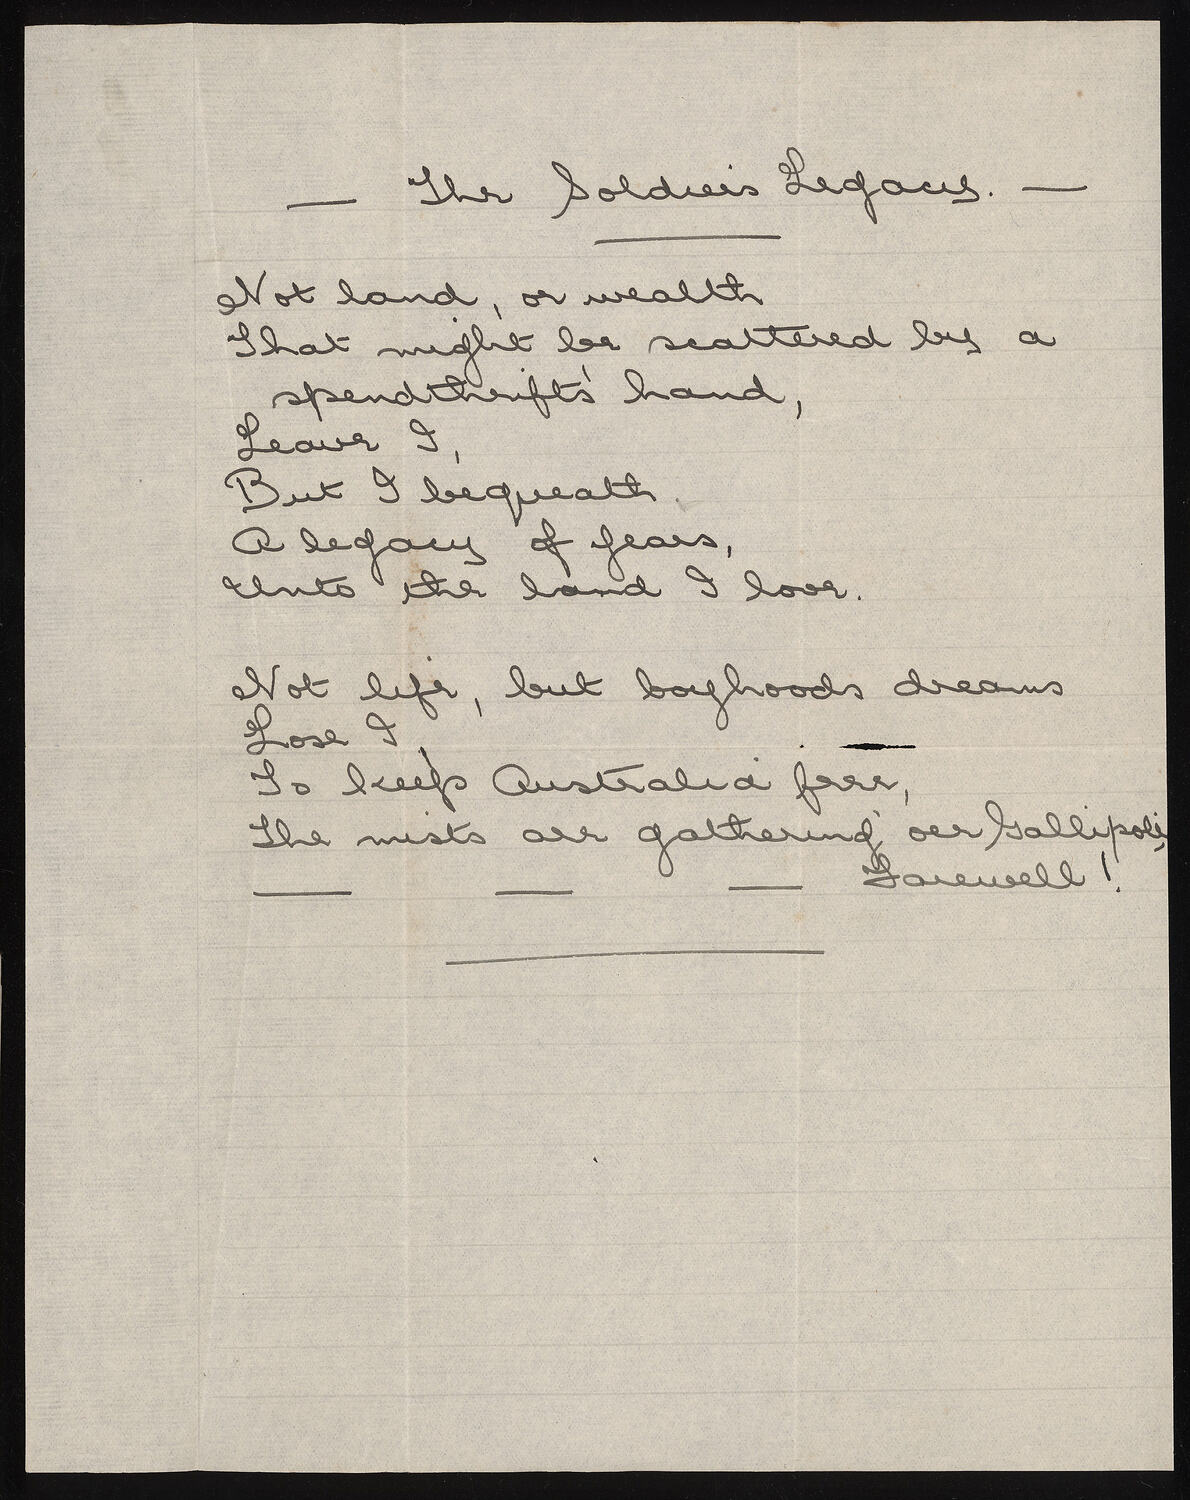 — The Soldier's Legacy. —
Not land, or wealth
That might be scattered by a
spendthrift's hand,
Leave I,
But I bequeath.
A legacy of years,
Unto the land I love.
Not life, but boyhoods dreams
Lose I,
To keep Australia free,
The mists are gathering oer Gallipoli,
— — — Farewell!